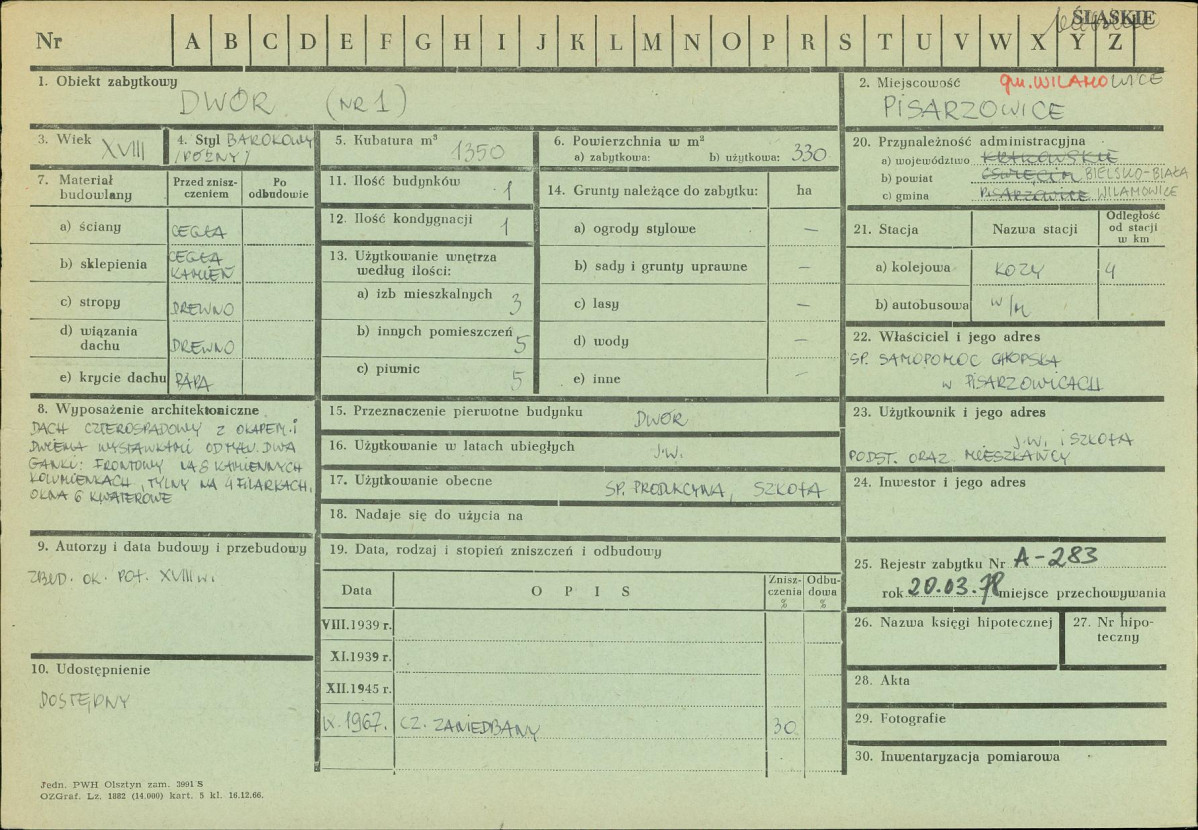 ŚLĄSKIE
Nr A B C D E F G H I J K L M N O P R S T U V W X Y Z
1. Obiekt zabytkowy
DWÓR (NR 1)
2. Miejscowość gm. WILAMOWICE
PISARZOWICE
3. Wiek XVIII
4. Styl BAROKOWY
/PÓŹNY/
5. Kubatura m³ 1350
6. Powierzchnia w m²
a) zabytkowa: b) użytkowa: 330
20. Przynależność administracyjna
a) województwo KRAKOWSKIE
b) powiat OŚWIĘCIM BIELSKO-BIAŁA
c) gmina PISARZOWICE WILAMOWICE
7. Materiał budowlany
Przed zniszczeniem
Po odbudowie
a) ściany CEGŁA
b) sklepienia CEGŁA
KAMIEŃ
c) stropy DREWNO
d) wiązania dachu DREWNO
e) krycie dachu PAPA
11. Ilość budynków 1
12. Ilość kondygnacji 1
13. Użytkowanie wnętrza
według ilości:
a) izb mieszkalnych 3
b) innych pomieszczeń 5
c) piwnic 5
14. Grunty należące do zabytku: ha
a) ogrody stylowe —
b) sady i grunty uprawne —
c) lasy —
d) wody —
e) inne —
21. Stacja Nazwa stacji
Odległość
od stacji
w km
a) kolejowa KOZY 4
b) autobusowa w/m
22. Właściciel i jego adres
SP. SAMOPOMOC CHŁOPSKA
W PISARZOWICACH
8. Wyposażenie architektoniczne
DACH CZTEROSPADOWY Z OKAPEM I
DWIEMA WYSTAWKAMI OD MAŁ. DWA
GANKI: FRONTOWY NA 8 KAMIENNYCH
KOLUMIENKACH, TYLNY NA 4 FILARKACH.
OKNA 6 KWATEROWE
15. Przeznaczenie pierwotne budynku DWÓR
16. Użytkowanie w latach ubiegłych J.W.
17. Użytkowanie obecne SP. PRODUKCYJNA, SZKOŁA
18. Nadaje się do użycia na
23. Użytkownik i jego adres
J.W. i SZKOŁA
PODST. ORAZ MIESZKAŃCY
24. Inwestor i jego adres
9. Autorzy i data budowy i przebudowy
ZBUD. OK. POŁ. XVIII w.
19. Data, rodzaj i stopień zniszczeń i odbudowy
Data O P I S
Zniszczenia %
Odbudowa %
VIII.1939 r.
XI.1939 r.
XII.1945 r.
IX.1967. CZ. ZANIEDBANY 30
25. Rejestr zabytku Nr A-283
rok 20.03.78 miejsce przechowywania
26. Nazwa księgi hipotecznej
27. Nr hipoteczny
28. Akta
29. Fotografie
30. Inwentaryzacja pomiarowa
10. Udostępnienie
DOSTĘPNY
Jedn. PWH Olsztyn zam. 3991 S
OZGraf. Lz. 1882 (14.000) kart. 5 kl. 16.12.66.